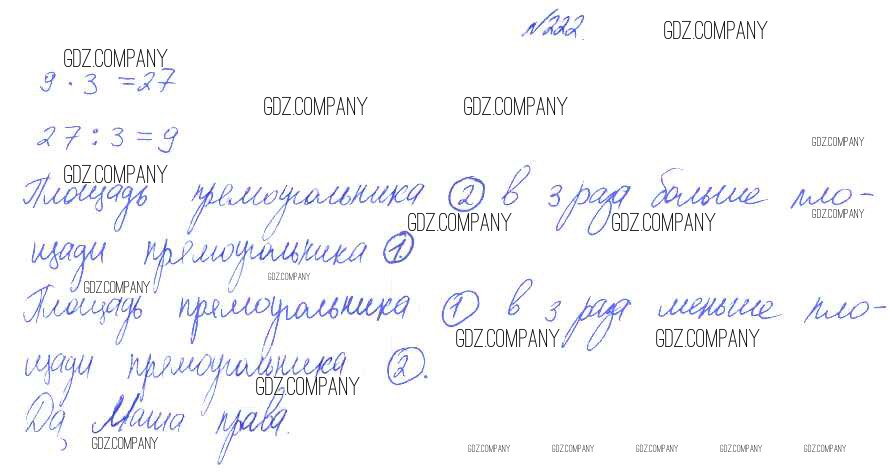 №222.
GDZ.COMPANY
GDZ.COMPANY
9 · 3 = 27
GDZ.COMPANY GDZ.COMPANY
27 : 3 = 9
GDZ.COMPANY
GDZ.COMPANY
Площадь прямоугольника ② в 3 раза больше пло-
GDZ.COMPANY GDZ.COMPANY GDZ.COMPANY
щади прямоугольника ①.
GDZ.COMPANY GDZ.COMPANY
Площадь прямоугольника ① в 3 раза меньше пло-
GDZ.COMPANY GDZ.COMPANY
щади прямоугольника ②.
GDZ.COMPANY
Да, Маша права.
GDZ.COMPANY GDZ.COMPANY GDZ.COMPANY GDZ.COMPANY GDZ.COMPANY GDZ.COMPANY